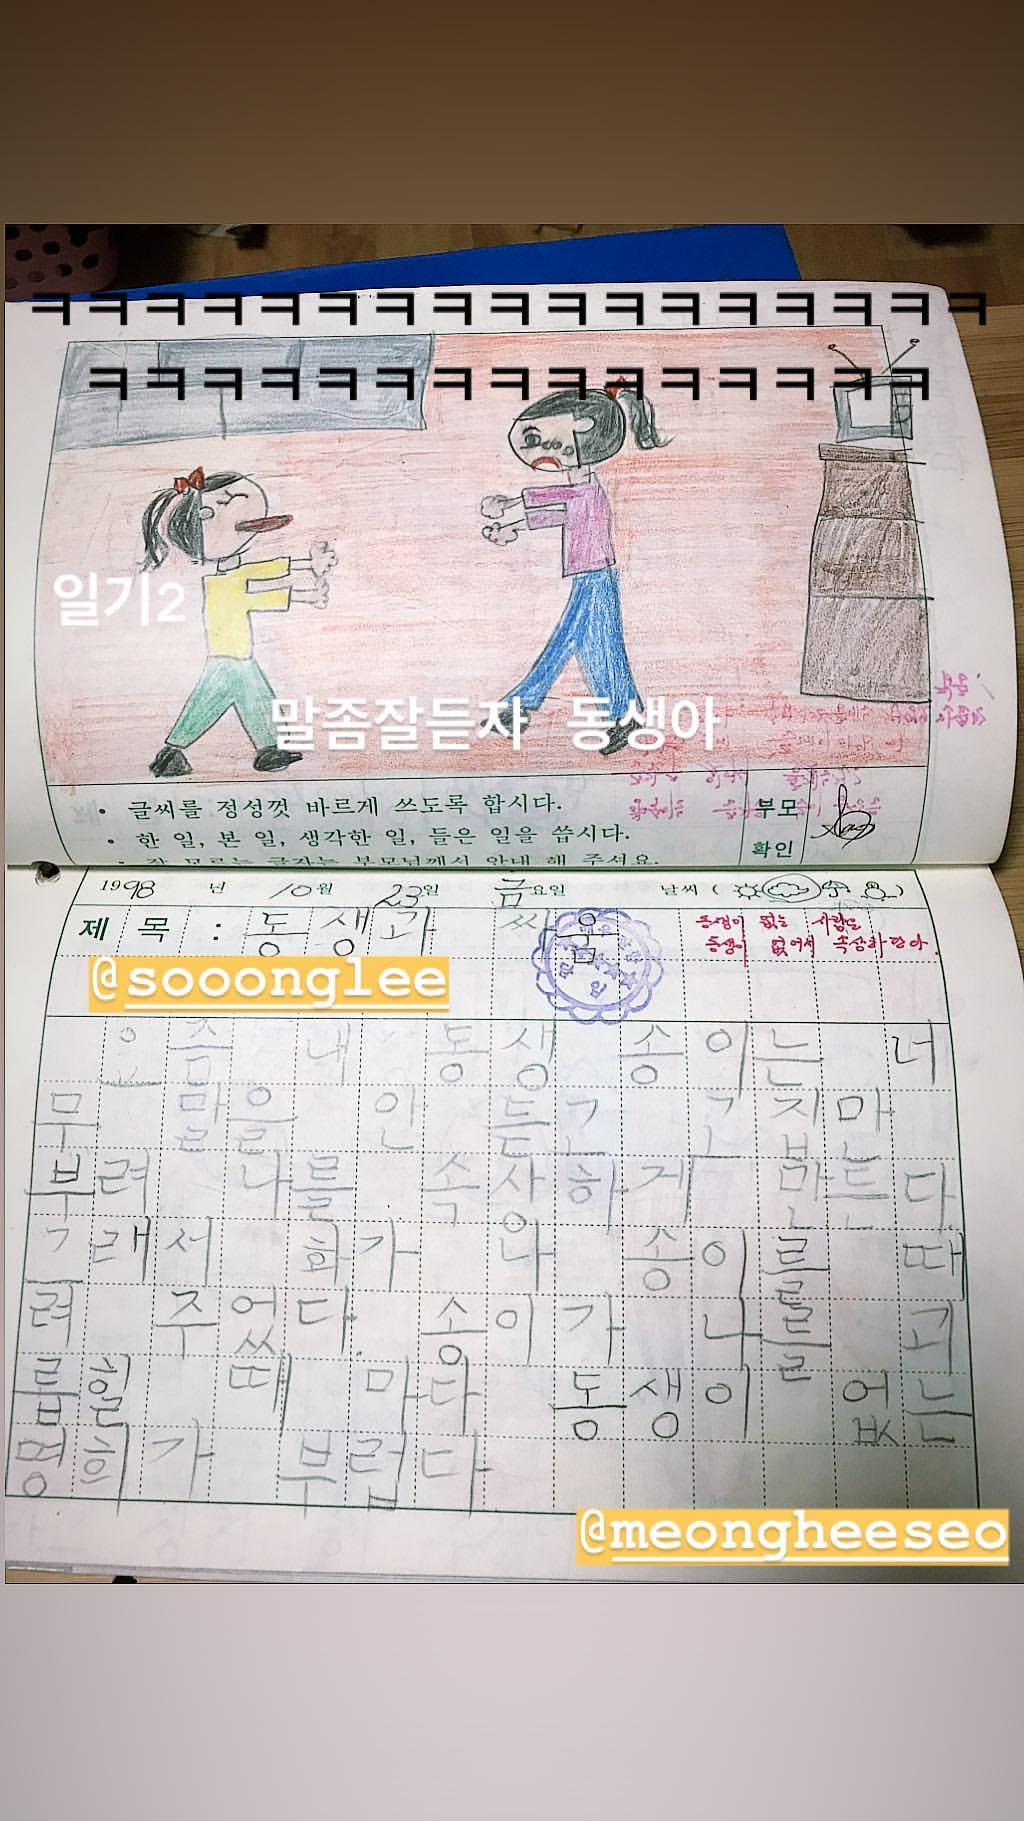 ㅋㅋㅋㅋㅋㅋㅋㅋㅋㅋㅋㅋㅋㅋㅋㅋㅋ
ㅋㅋㅋㅋㅋㅋㅋㅋㅋㅋㅋㅋㅋㅋㅋ
일기2
말좀잘듣자 동생아
• 글씨를 정성껏 바르게 쓰도록 합시다.
• 한 일, 본 일, 생각한 일, 들은 일을 씁시다.
• 잘 모르는 글자는 부모님께서 안내 해 주세요.
부모
확인
1998 년 10월 23일 금요일 날씨 ( )
제 목 : 동생과 싸움
동생이 없는 사람은
동생이 없어서 속상하단다.
@sooonglee
요즘 내 동생 송이는 너
무 말을 안 듣는 고집만
부려 나를 속상하게 만든다.
그래서 화가 나 송이를 때
려 주었다. 송이가 나를 괴
롭힐 때 마다 동생이 없는
명희가 부럽다.
@meongheeseo